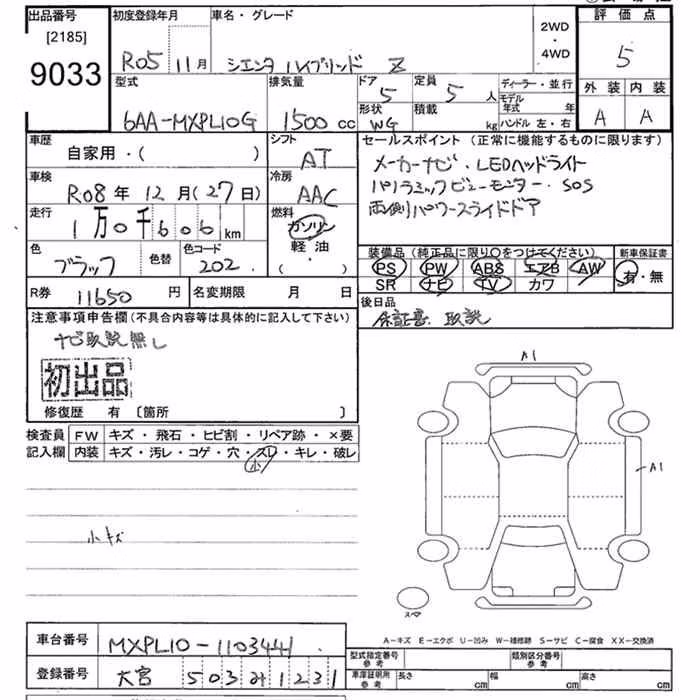 出品番号 初度登録年月 車名・グレード 2WD・4WD 評価点
[2185]
9033 R05 11月 シエンタ ハイブリッド Z 5
型式 排気量 ドア 定員 ディーラー・並行 外装 内装
6AA-MXPL10G 1500cc 5 5人 モデル年式 年 A A
形状 積載 ハンドル 左・右
WG kg
車歴 シフト セールスポイント (正常に機能するものに限ります)
自家用・( ) AT メーカーナビ・LEDヘッドライト
車検 冷房 パノラミックビューモニター・SOS
R08年12月(27日) AAC 両側パワースライドドア
走行 燃料
1万0千606km ガソリン
色 色替 色コード 軽油・( )
ブラック 202
装備品 (純正品に限り○をつけてください) 新車保証書
PS PW ABS エアB AW 有・無
SR ナビ TV カワ
R券 11650円 名変期限 月 日
後日品
保証書、取説
注意事項申告欄 (不具合内容等は具体的に記入して下さい)
ナビ取説無し
初出品
修復歴 有 〔箇所 〕
検査員記入欄 FW キズ・飛石・ヒビ割・リペア跡・×要
内装 キズ・汚レ・コゲ・穴・スレ・キレ・破レ
小
小キズ
A1
A1
スペア
A-キズ E-エクボ U-凹み W-補修跡 S-サビ C-腐食 XX-交換済
車台番号 MXPL10-1103441
型式指定番号 参考 類別区分番号 参考
登録番号 大宮 503 み 1231
車庫証明所 参考 長さ cm 幅 cm 高さ cm